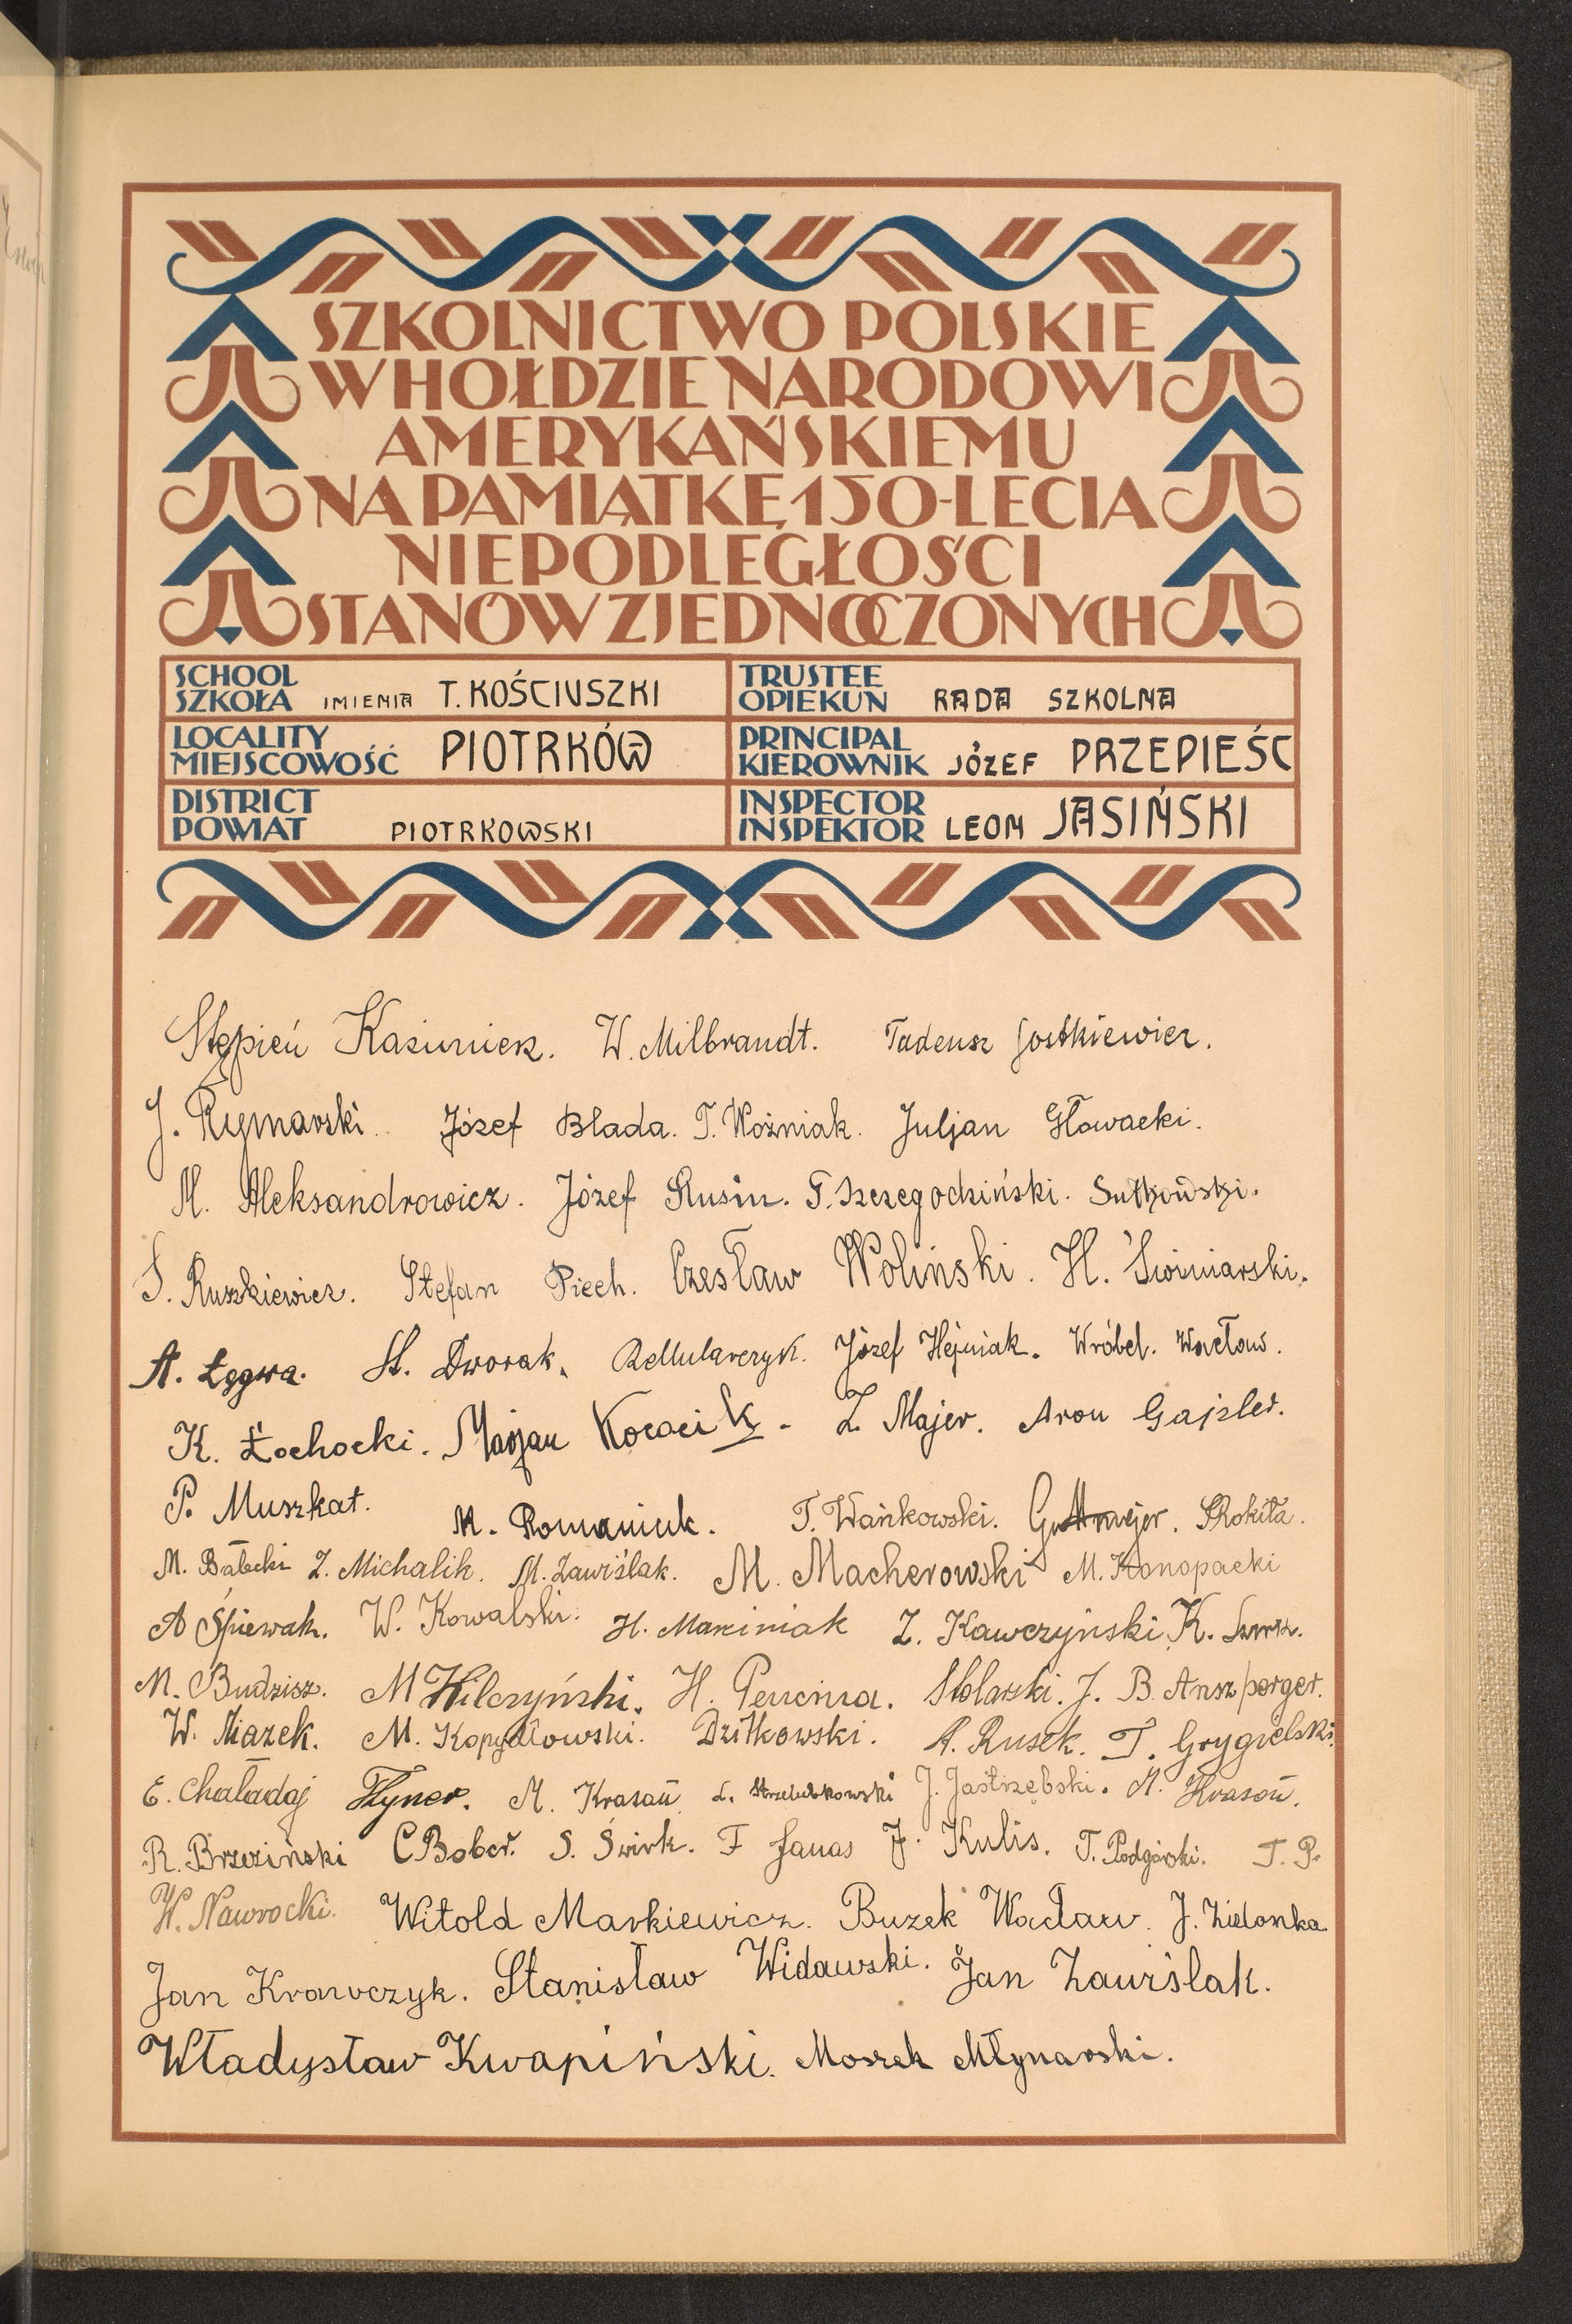 SZKOLNICTWO POLSKIE
W HOŁDZIE NARODOWI
AMERYKAŃSKIEMU
NA PAMIĄTKĘ 150-LECIA
NIEPODLEGŁOŚCI
STANÓW ZJEDNOCZONYCH
SCHOOL
SZKOŁA IMIENIA T. KOŚCIUSZKI
TRUSTEE
OPIEKUN RADA SZKOLNA
LOCALITY
MIEJSCOWOŚĆ PIOTRKÓW
PRINCIPAL
KIEROWNIK JÓZEF PRZEPIEŚĆ
DISTRICT
POWIAT PIOTRKOWSKI
INSPECTOR
INSPEKTOR LEON JASIŃSKI
Stępień Kazimierz. W. Milbrandt. Tadeusz Jostkiewicz.
J. Rymarski. Józef Blada. T. Woźniak. Juljan Głowacki.
M. Aleksandrowicz. Józef Rusin. T. Szczegodziński. Sutkowski.
S. Ruszkiewicz. Stefan Piech. Czesław Woliński. H. Świniarski.
A. Łęgwa. St. Dworak. Józef Hejniak. Wróbel. Wacław.
K. Łochocki. Marjan Kocacik. Z. Majer. Aron Gajzler.
P. Muszkat. M. Romaniuk. T. Wańkowski. Guttmejer. Rokita.
M. Bałecki Z. Michalik. M. Zawiślak. M. Macherowski M. Konopacki
A Śpiewak. W. Kowalski. H. Marciniak Z. Kawczyński K.
M. Budzisz. M Wilczyński. H. Pencina. Stolarski. J. B. Anszperger.
W. Miazek. M. Kopydłowski. Dzitkowski. A. Rusek. T. Grygielski.
E. Chaładaj Flyner. M. Krasoń J. Jastrzębski. M. Krasoń.
R. Brzeziński C Bober. S. Świrk. F Janas J. Kulis. T. Podgórski. T. P.
W. Nawrocki. Witold Markiewicz. Buzek Wacław. J. Zielonka.
Jan Krawczyk. Stanisław Widawski. Jan Zawiślak.
Władysław Kwapiński. Moszek Młynarski.